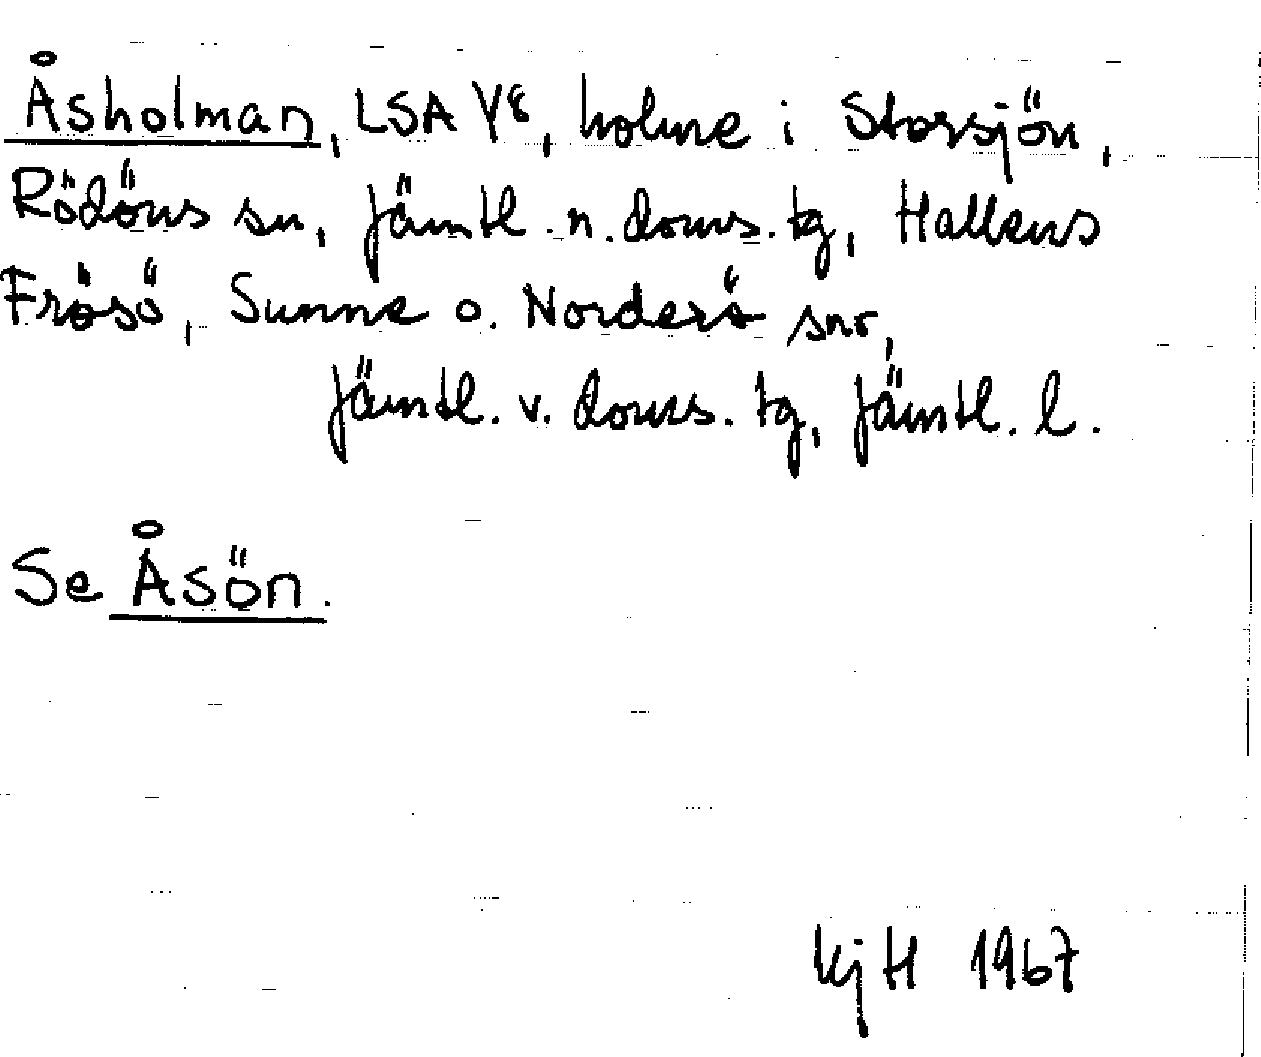 Åsholman, LSA Y⁸, holme i Storsjön,
Rödöns sn, Jämtl. n. doms. tg, Hallens
Frösö, Sunne o. Norderö snr,
Jämtl. v. doms. tg, Jämtl. l.
Se Åsön.
KjH 1967